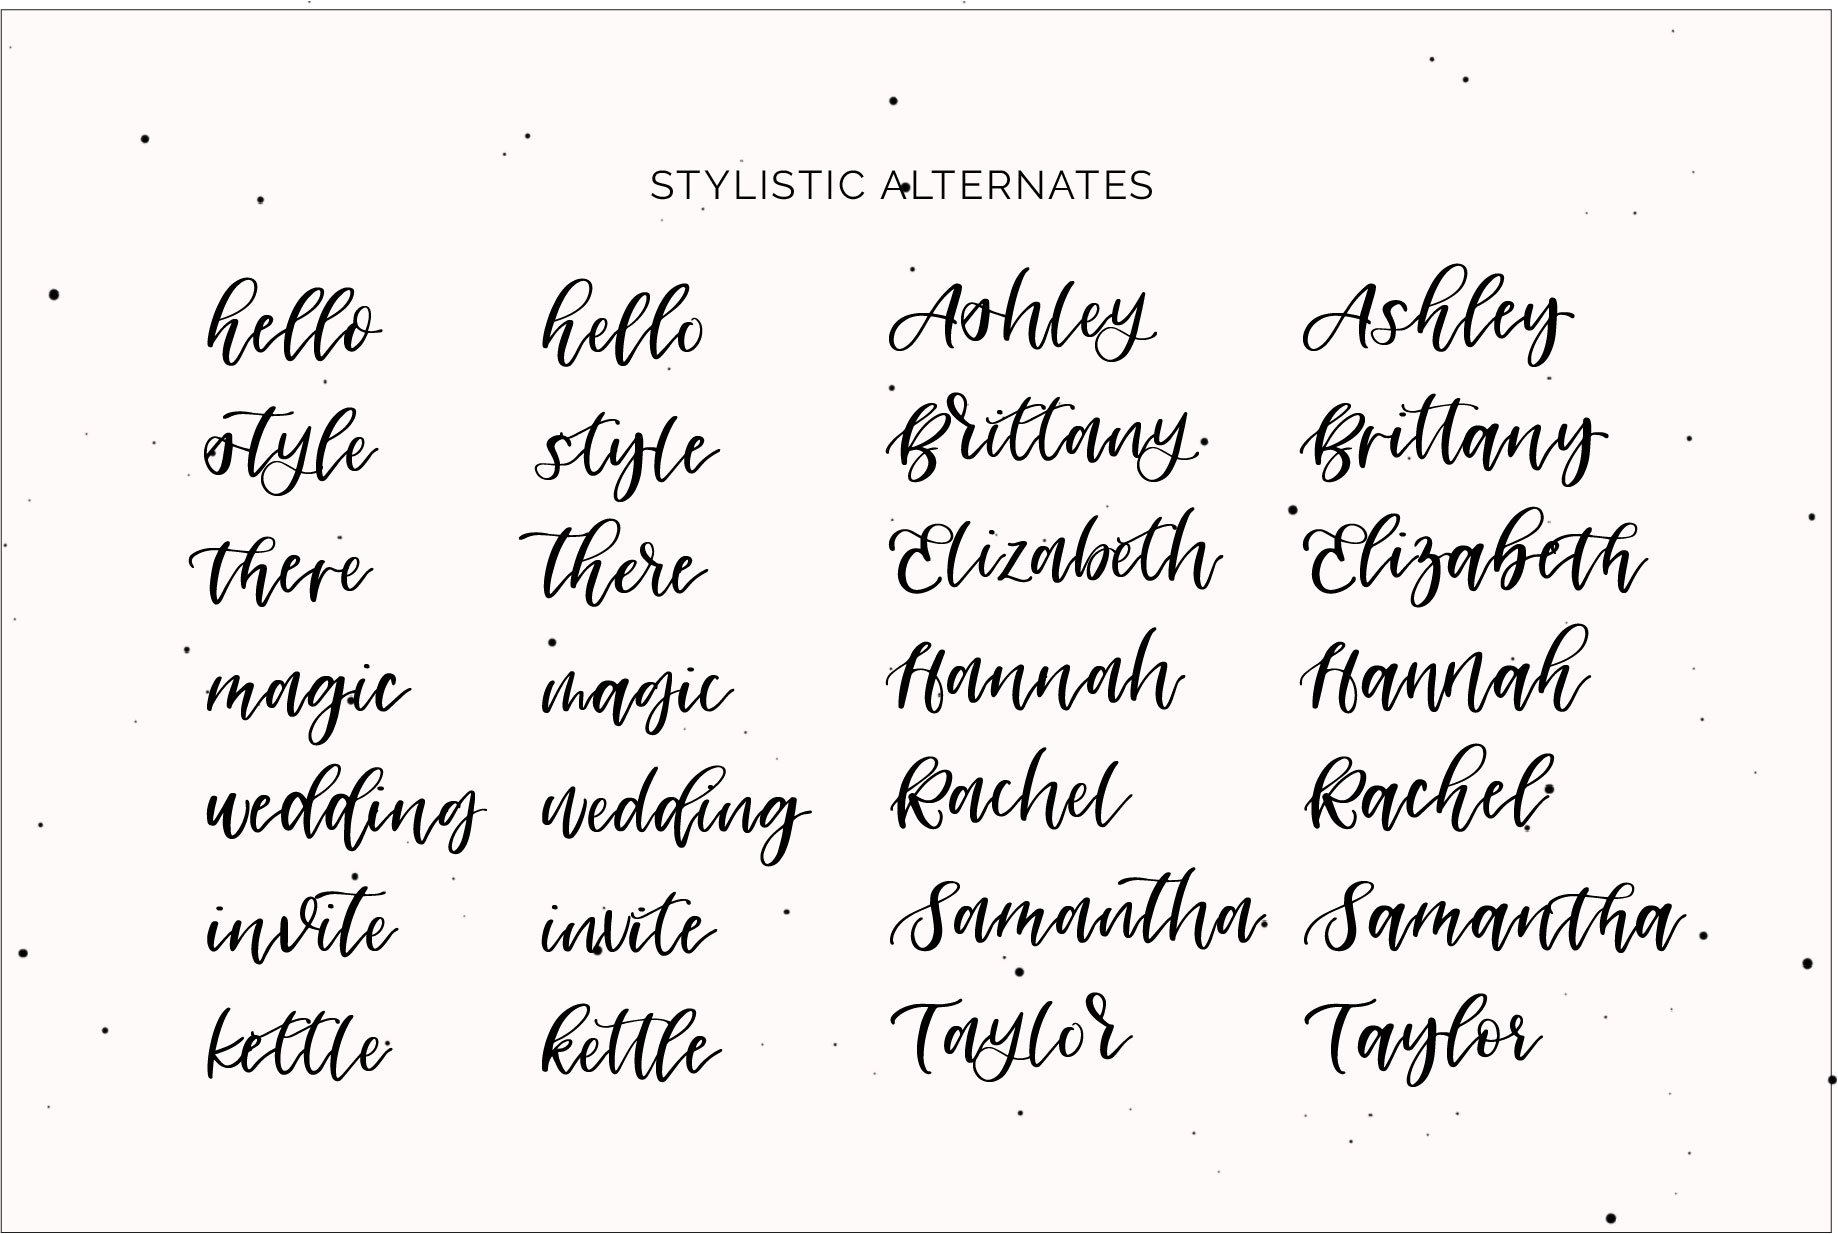 STYLISTIC ALTERNATES
hello hello Ashley Ashley
style style Brittany Brittany
there there Elizabeth Elizabeth
magic magic Hannah Hannah
wedding wedding Rachel Rachel
invite invite Samantha Samantha
kettle kettle Taylor Taylor